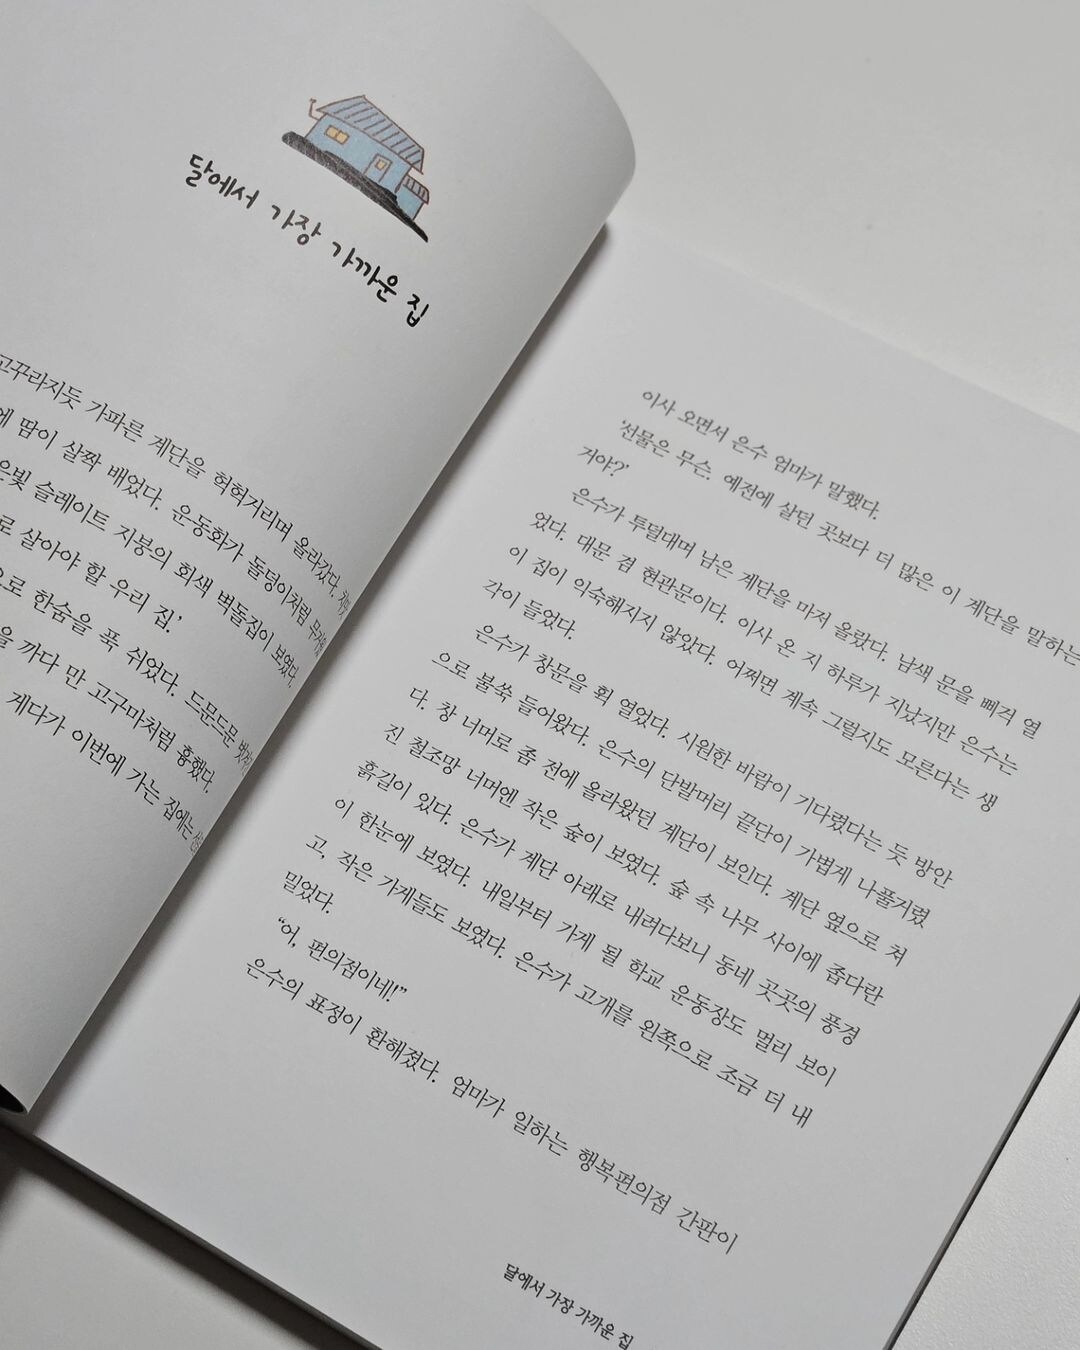 달에서 가장 가까운 집
고꾸라지듯 가파른 계단을 헉헉거리며 올라갔다.
에 땀이 살짝 배었다. 운동화가 돌덩이처럼 무거웠
은빛 슬레이트 지붕의 회색 벽돌집이 보였다.
로 살아야 할 우리 집.’
으로 한숨을 푹 쉬었다. 드문드문
을 까다 만 고구마처럼 흉했다.
게다가 이번에 가는 집에는
이사 오면서 은수 엄마가 말했다.
‘선물은 무슨. 예전에 살던 곳보다 더 많은 이 계단을 말하는
거야?’
은수가 투덜대며 남은 계단을 마저 올랐다. 남색 문을 삐걱 열
었다. 대문 겸 현관문이다. 이사 온 지 하루가 지났지만 은수는
이 집이 익숙해지지 않았다. 어쩌면 계속 그럴지도 모른다는 생
각이 들었다.
은수가 창문을 획 열었다. 시원한 바람이 기다렸다는 듯 방안
으로 불쑥 들어왔다. 은수의 단발머리 끝단이 가볍게 나풀거렸
다. 창 너머로 좀 전에 올라왔던 계단이 보인다. 계단 옆으로 쳐
진 철조망 너머엔 작은 숲이 보였다. 숲 속 나무 사이에 좁다란
흙길이 있다. 은수가 계단 아래로 내려다보니 동네 곳곳의 풍경
이 한눈에 보였다. 내일부터 가게 될 학교 운동장도 멀리 보이
고, 작은 가게들도 보였다. 은수가 고개를 왼쪽으로 조금 더 내
밀었다.
“어, 편의점이네!”
은수의 표정이 환해졌다. 엄마가 일하는 행복편의점 간판이
달에서 가장 가까운 집